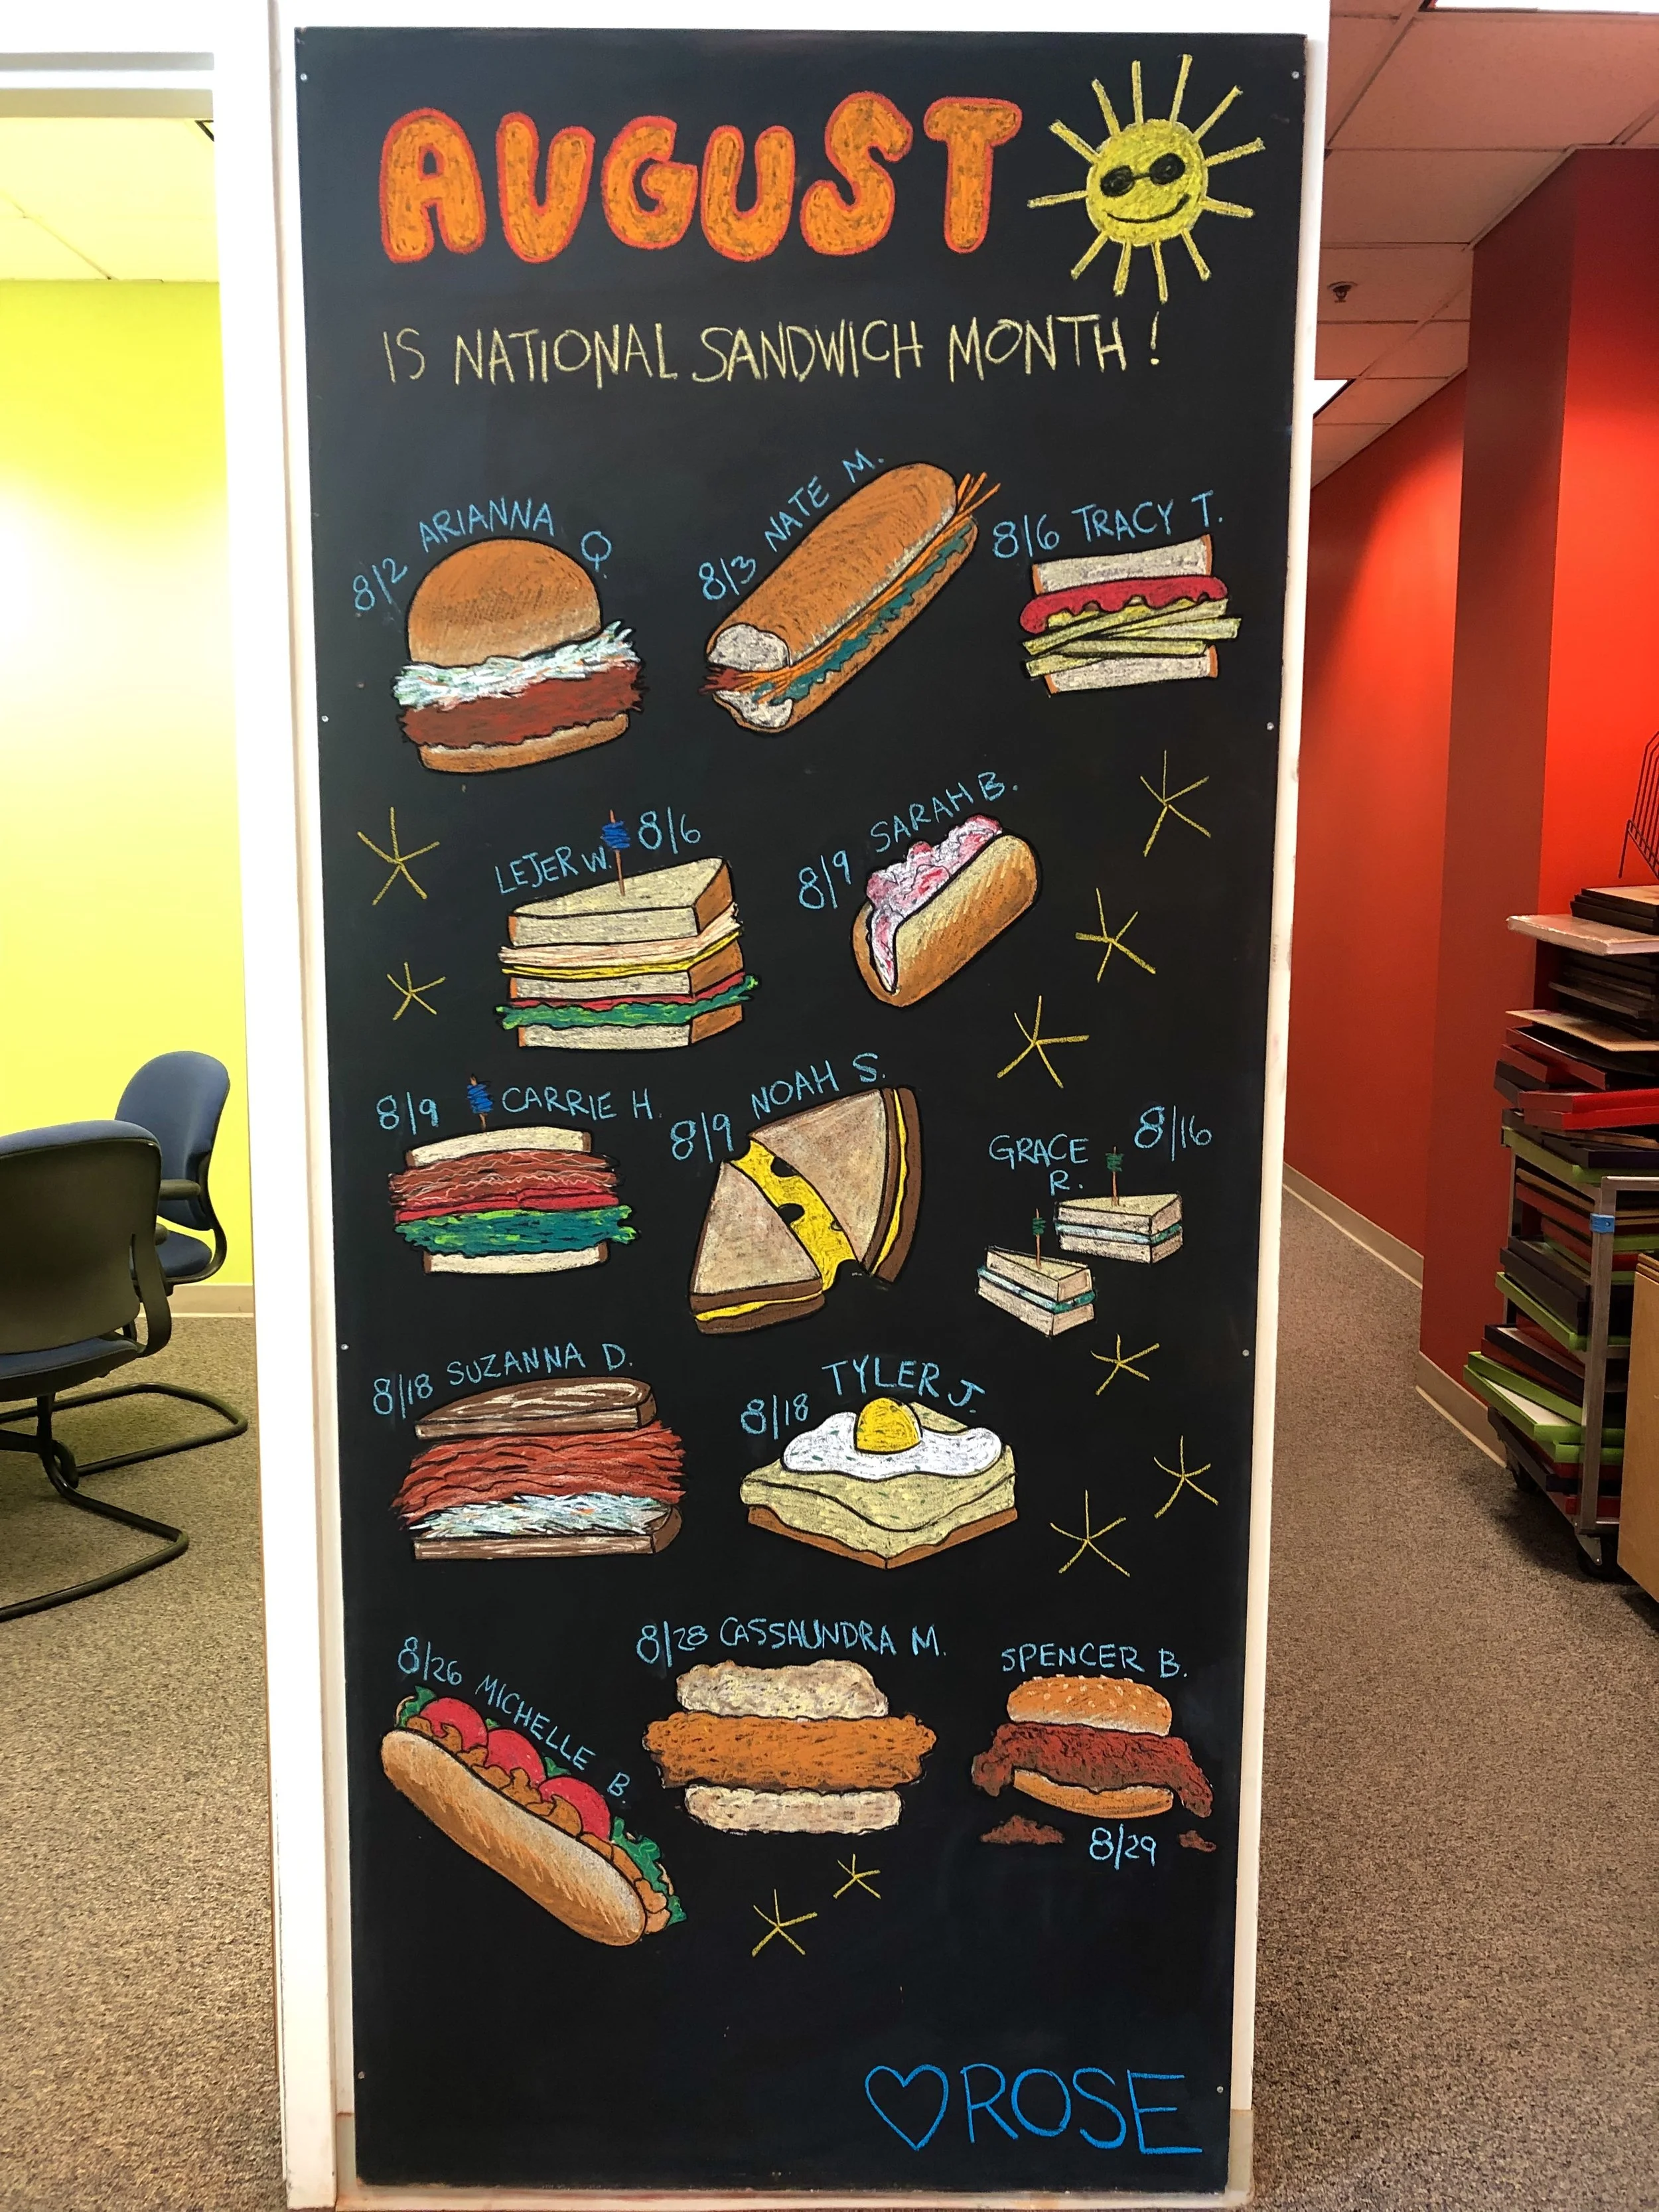 AUGUST
IS NATIONAL SANDWICH MONTH!
8/2 ARIANNA Q.
8/3 NATE M.
8/6 TRACY T.
LEJER W. 8/6
8/9 SARAH B.
8/9 CARRIE H.
8/9 NOAH S.
GRACE
R.
8/16
8/18 SUZANNA D.
8/18 TYLER J.
8/26 MICHELLE B.
8/28 CASSAUNDRA M.
SPENCER B.
8/29
ROSE